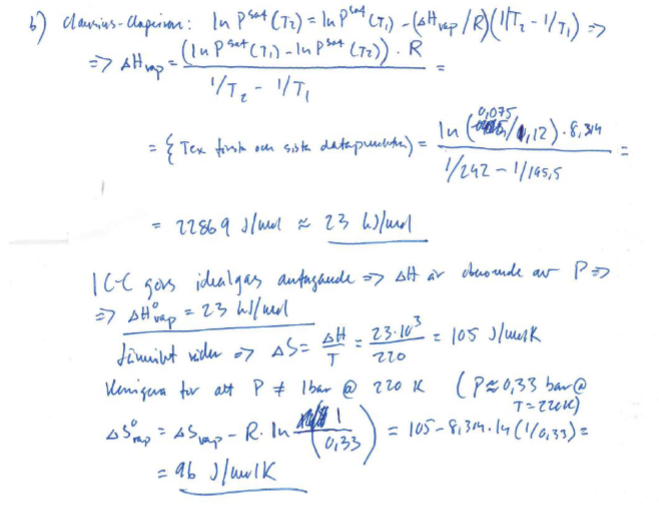 b) Clausius-Clapeyron: ln P^sat (T₂) = ln P^sat (T₁) - (ΔH_vap / R)(1/T₂ - 1/T₁) =>
=> ΔH_vap = (ln P^sat (T₁) - ln P^sat (T₂)) · R / (1/T₂ - 1/T₁) =
= { Tex första och sista datapunkten } = ln (0,075/1,12) · 8,314 / (1/242 - 1/195,5) =
= 22869 J/mol ≈ 23 kJ/mol
I C-C görs idealgas antagande => ΔH är oberoende av P =>
=> ΔH°_vap = 23 kJ/mol
Jämvikt råder => ΔS = ΔH/T = 23·10³/220 = 105 J/molK
Korrigera för att P ≠ 1bar @ 220 K (P≈0,33 bar @
T=220K)
ΔS°_vap = ΔS_vap - R · ln (1/0,33) = 105 - 8,314 · ln (1/0,33) =
= 96 J/molK